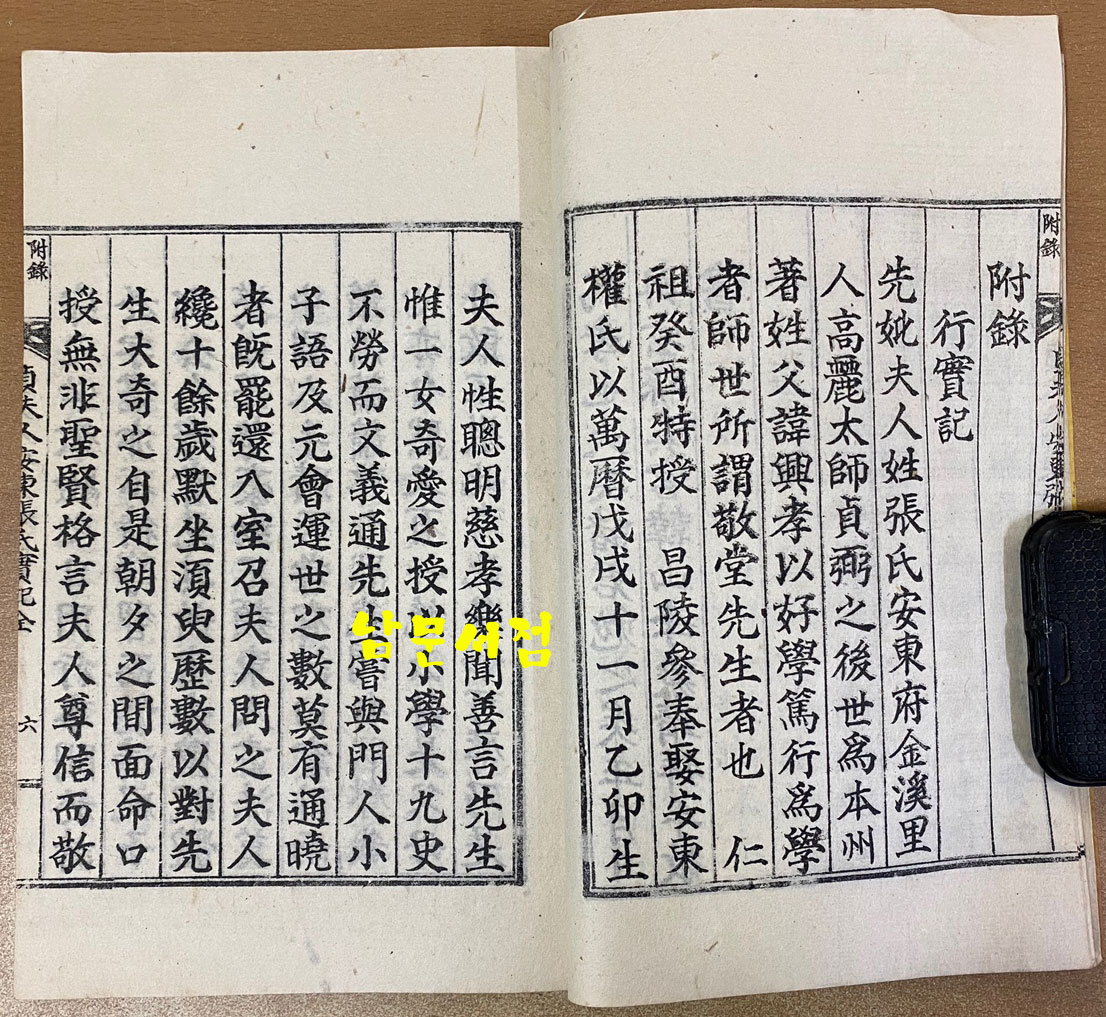 附錄
附錄
行實記
先妣夫人姓張氏安東府金溪里
人高麗太師貞弼之後世爲本州
著姓父諱興孝以好學篤行爲學
者師世所謂敬堂先生者也 仁
祖癸酉特授 昌陵參奉娶安東
權氏以萬曆戊戌十一月乙卯生
夫人性聰明慈孝樂聞善言先生
惟一女奇愛之授以小學十九史
不勞而文義通先生嘗與門人小
子語及元會運世之數莫有通曉
者旣罷還入室召夫人問之夫人
纔十餘歲默坐須臾歷數以對先
生大奇之自是朝夕之間面命口
授無非聖賢格言夫人尊信而敬
附錄
貞夫人安東張氏實記全
六
남문서점